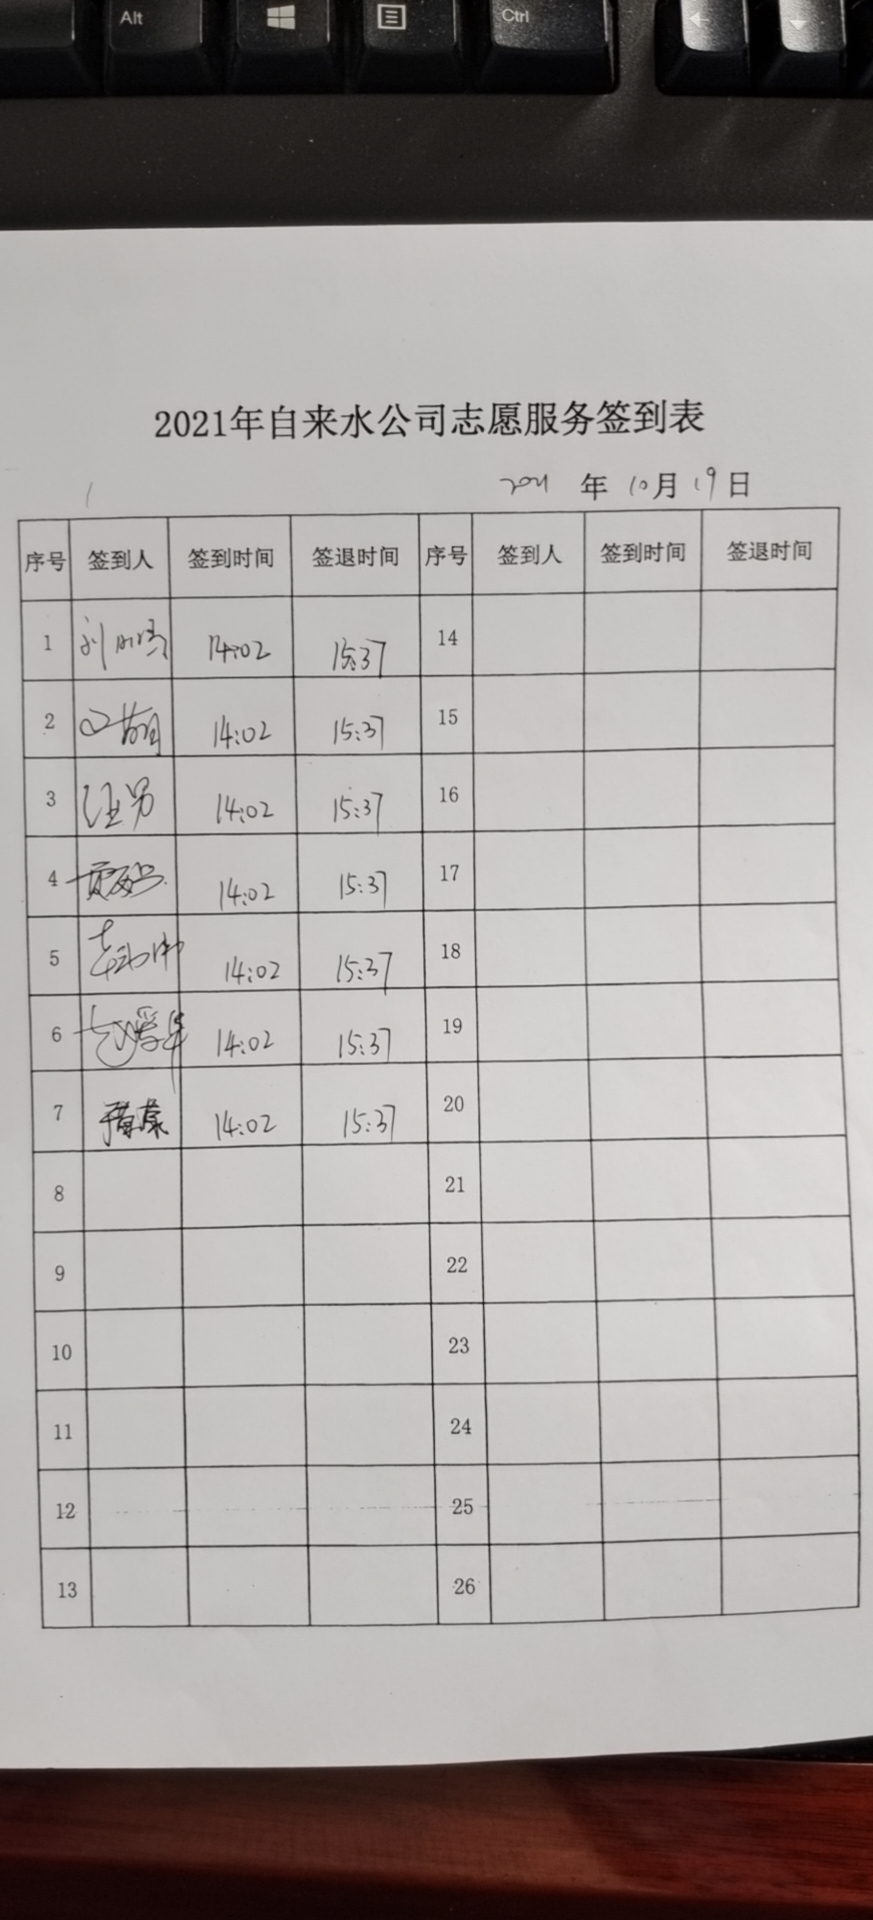 Alt
Ctrl
2021年自来水公司志愿服务签到表
2021 年 10月 19日
序号 签到人 签到时间 签退时间 序号 签到人 签到时间 签退时间
1 14:02 15:37 14
2 14:02 15:37 15
3 汪男 14:02 15:37 16
4 14:02 15:37 17
5 14:02 15:37 18
6 14:02 15:37 19
7 14:02 15:37 20
8 21
9 22
10 23
11 24
12 25
13 26